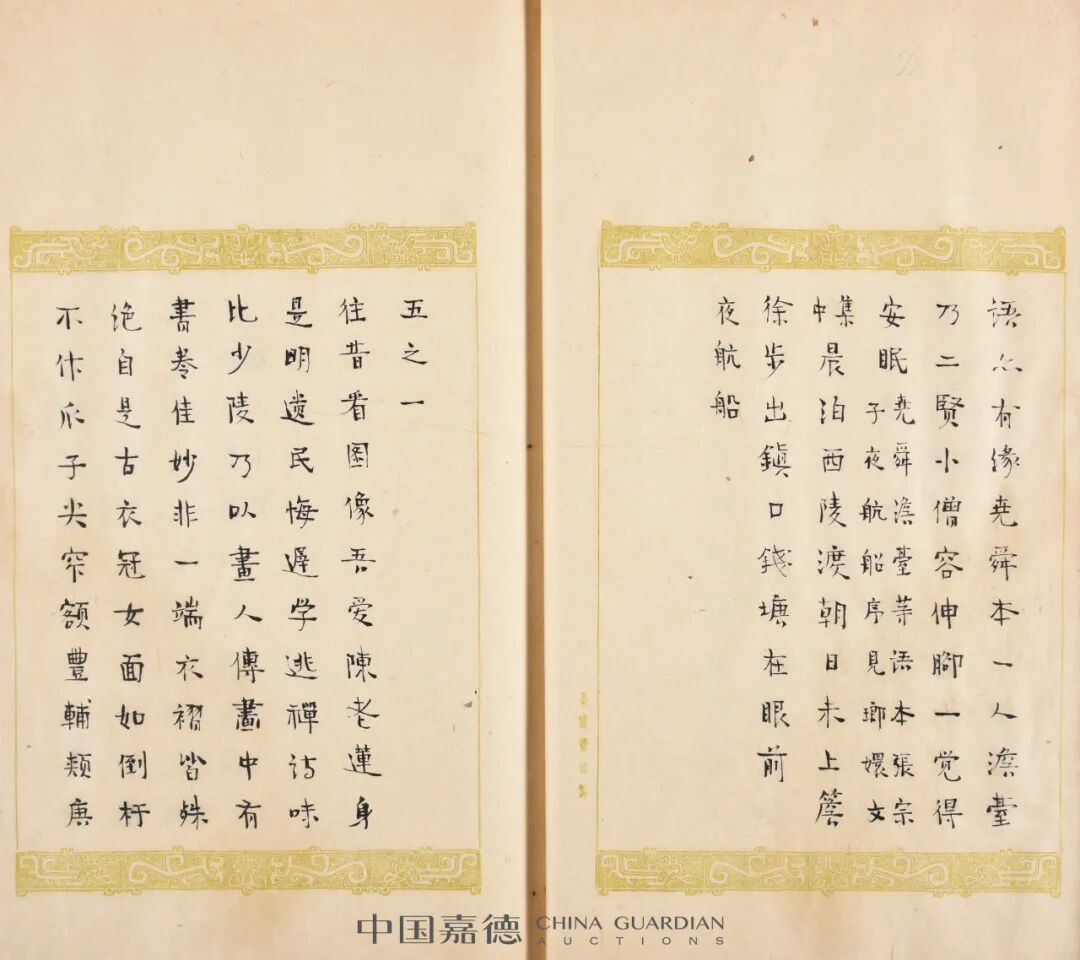 語亦有緣堯舜本一人澹臺
乃二賢小僧容伸腳一觉得
安眠堯舜澹臺等語本張宗
子夜航船序見瑯嬛文
集中晨泊西陵渡朝日未上簷
徐步出鎮口錢塘在眼前
夜航船
五之一
往昔看图像吾爱陳老蓮身
是明遗民悔遲学逃禪詩味
比少陵乃以畫人傳畫中有
書卷佳妙非一端衣褶皆殊
绝自是古衣冠女面如倒杵
不作瓜子尖窄額豐輔頰
中国嘉德 CHINA GUARDIAN
AUCTIONS